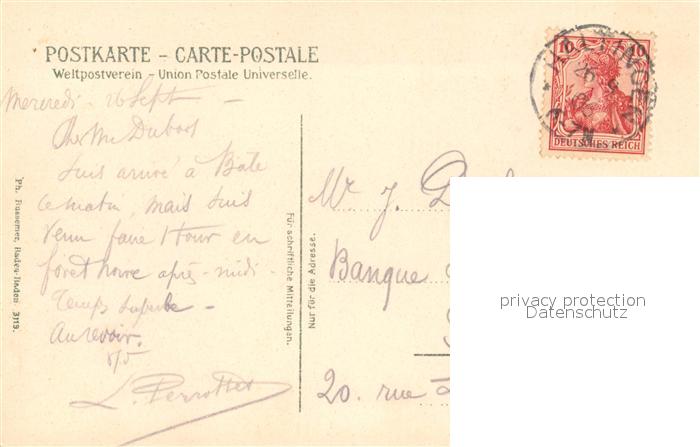 POSTKARTE – CARTE-POSTALE
Weltpostverein – Union Postale Universelle.
Mercredi - 26 Sept -
Cher Mr Dubois
suis arrivé à Bâle
ce matin, mais suis
venu faire 1 tour en
forêt noire après-midi -
Temps superbe -
Au revoir.
L. Perrottet
Ph. Bussemer, Baden-Baden. 3119.
Für schriftliche Mitteilungen.
Nur für die Adresse.
10 10
DEUTSCHES REICH
26 9
Mr J.
Banque
20. rue
privacy protection
Datenschutz